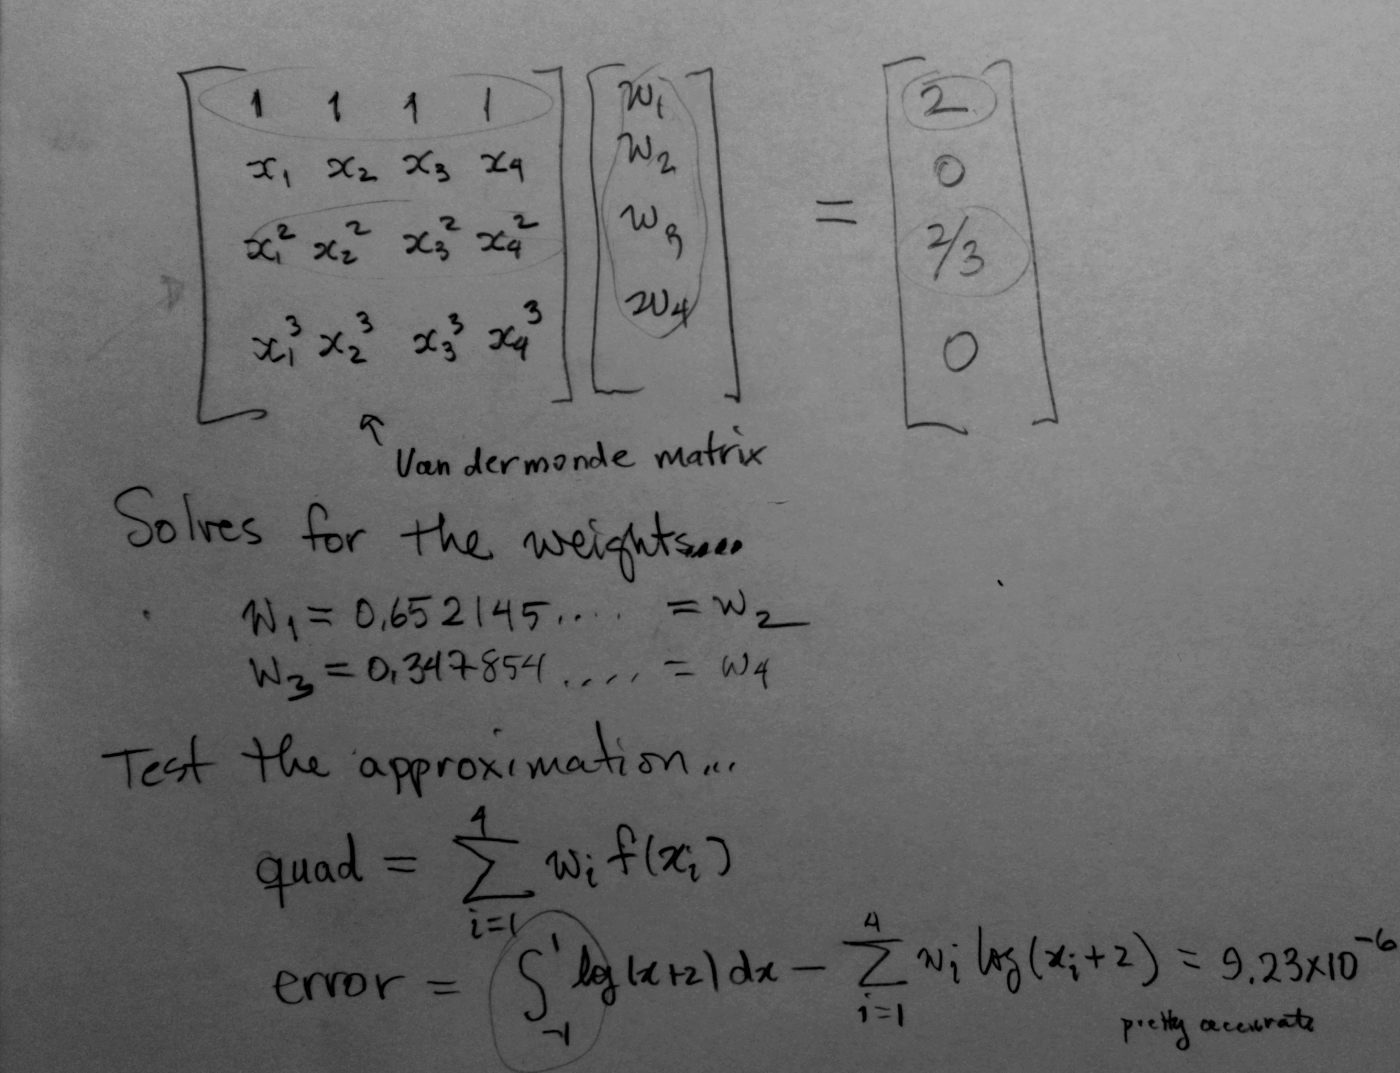 1 1 1 1 w₁ 2
x₁ x₂ x₃ x₄ w₂ 0
x₁² x₂² x₃² x₄² w₃ = 2/3
x₁³ x₂³ x₃³ x₄³ w₄ 0
↖ Vandermonde matrix
Solves for the weights....
w₁ = 0,652145.... = w₂
w₃ = 0,347854.... = w₄
Test the approximation...
quad = ∑_{i=1}^{4} wᵢ f(xᵢ)
error = ∫_{-1}^{1} log(x+2) dx − ∑_{i=1}^{4} wᵢ log(xᵢ+2) = 9.23×10⁻⁶
pretty accurate